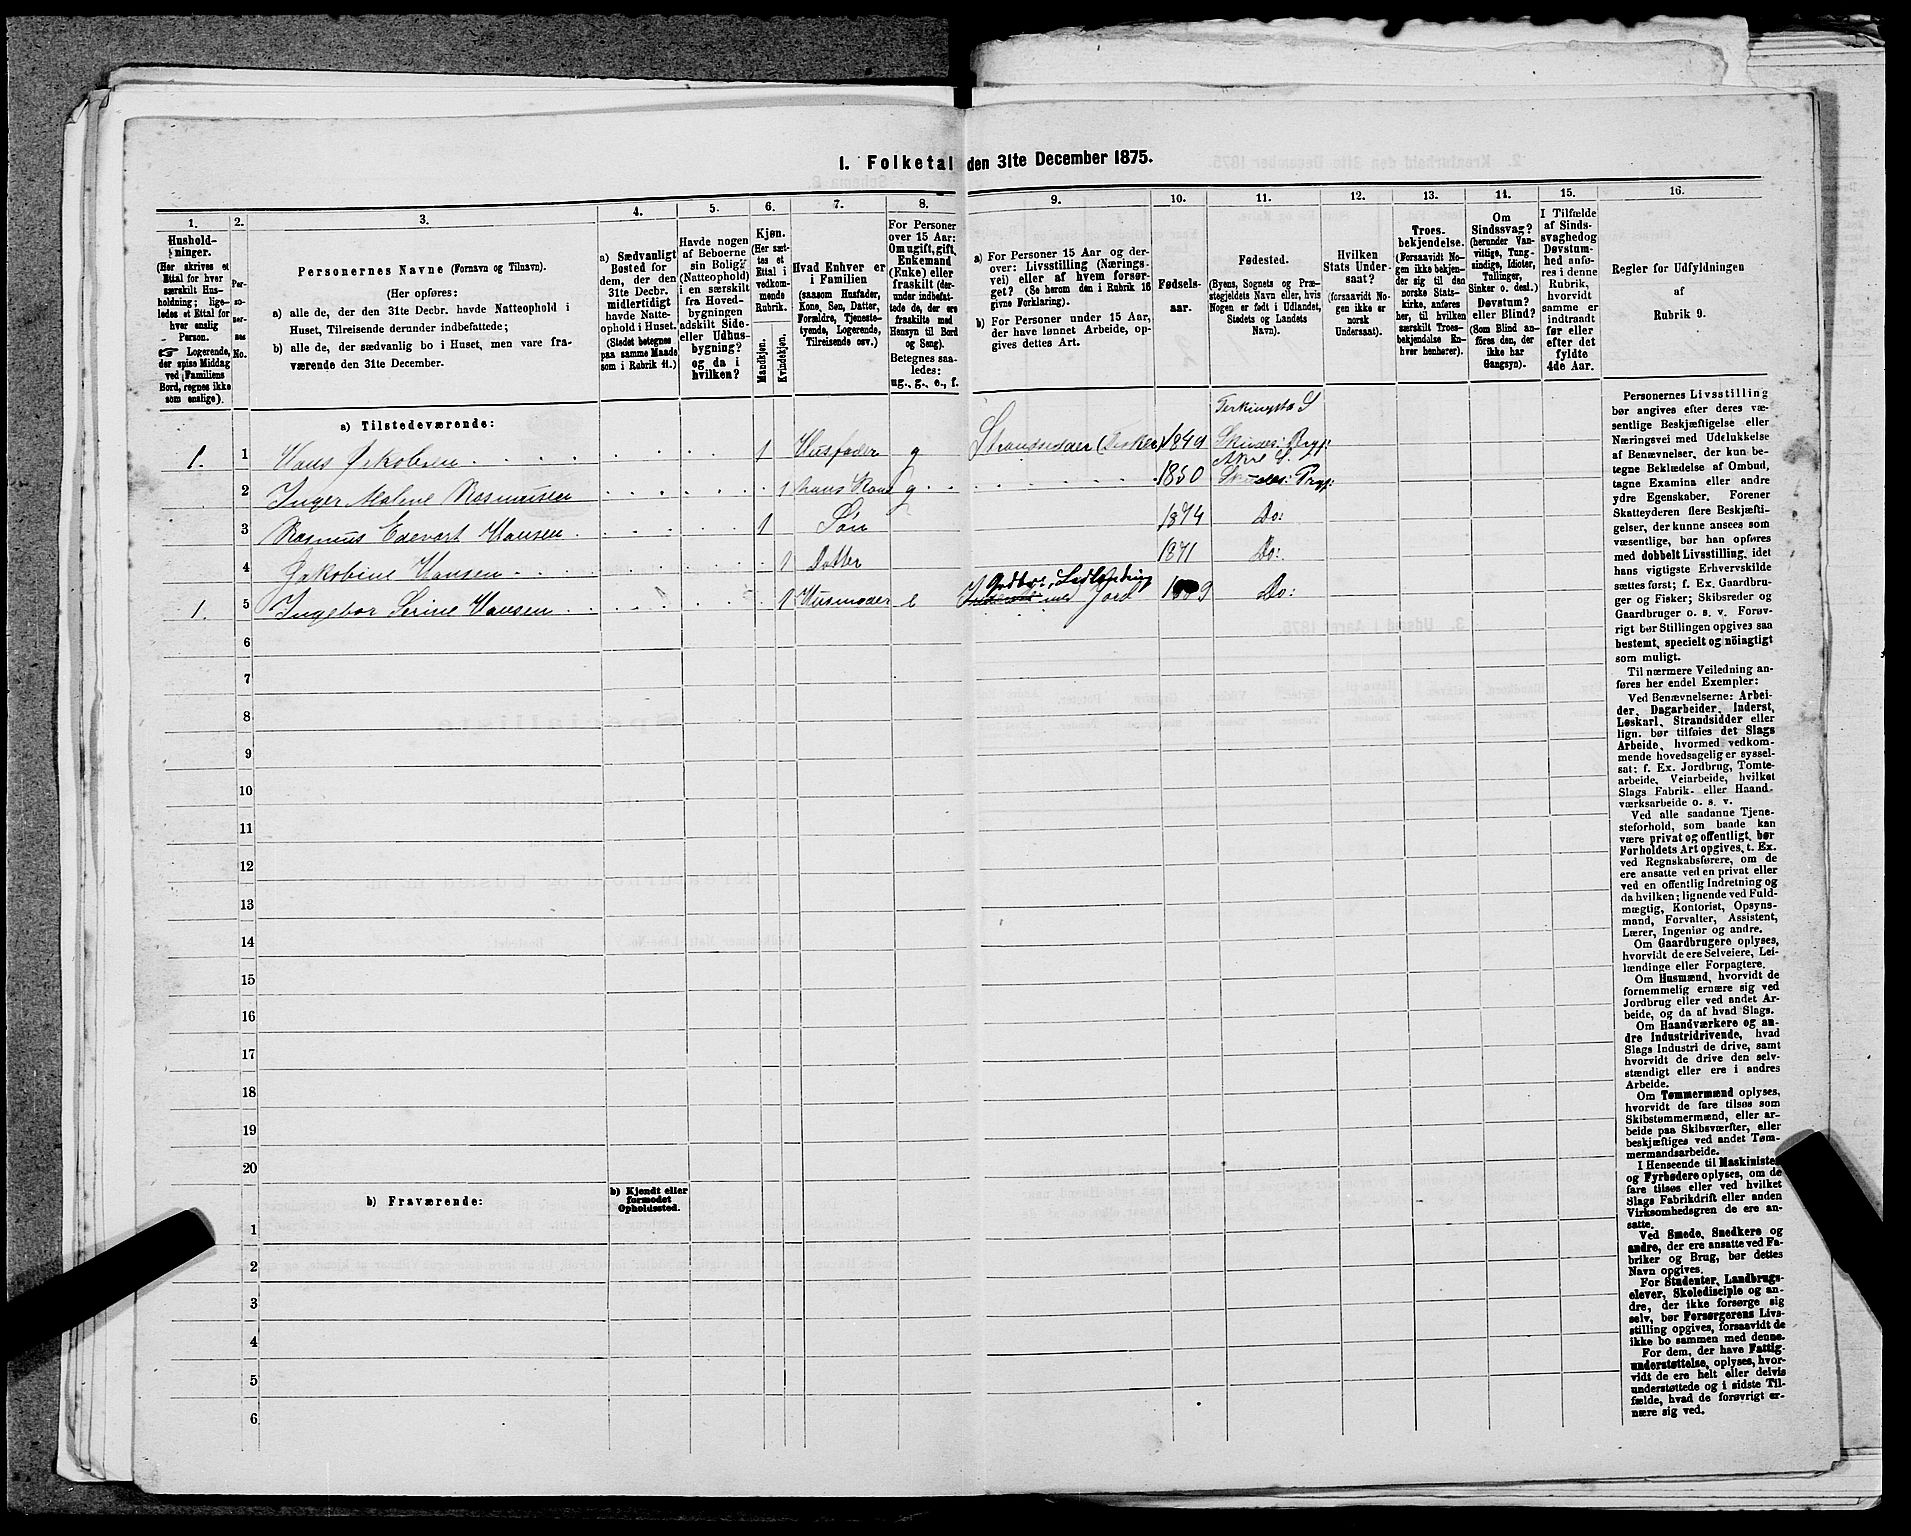 1. Folketal den 31te December 1875.
1. 2. 3. 4. 5. 6. 7. 8. 9. 10. 11. 12. 13. 14. 15. 16.
Hushold-
ninger.
(Her skrives et
Ettal for hver
særskilt Hus-
holdning; lige-
ledes et Ettal for
hver enslig
Person.
☞ Logerende,
der spise Middag
ved Familiens
Bord, regnes ikke
som enslige).
Per-
so-
ner-
nes
No.
Personernes Navne (Fornavn og Tilnavn).
(Her opføres:
a) alle de, der den 31te Decbr. havde Natteophold i
Huset, Tilreisende derunder indbefattede;
b) alle de, der sædvanlig bo i Huset, men vare fra-
værende den 31te December.
a) Sædvanligt
Bosted for
dem, der den
31te Decbr.
midlertidigt
havde Natte-
ophold i Huset.
(Stedet betegnes
paa samme Maade
som i Rubrik 11.)
Havde nogen
af Beboerne
sin Bolig
(Natteophold)
i en særskilt
fra Hoved-
bygningen
adskilt Side-
eller Udhus-
bygning?
og da i
hvilken?
Kjøn.
(Her sæt-
tes et
Ettal i
vedkom-
mende
Rubrik.
Mandkjøn.
Kvindekjøn.
Hvad Enhver er
i Familien
(saasom Husfader,
Kone, Søn, Datter,
Forældre, Tjeneste-
tyende, Logerende,
Tilreisende osv.)
For Personer
over 15 Aar:
Om ugift, gift,
Enkemand
(Enke) eller
fraskilt (der-
under indbefat-
tede de, der ere
fraskilte med
Hensyn til Bord
og Seng).
Betegnes saa-
ledes:
ug., g., e., f.
a) For Personer 15 Aar og der-
over: Livsstilling (Nærings-
vei) eller af hvem forsør-
get? (Se herom den i Rubrik 16
givne Forklaring).
b) For Personer under 15 Aar,
der have lønnet Arbeide, op-
gives dettes Art.
Fødsels-
aar.
Fødested.
(Byens, Sognets og Præ-
stegjeldets Navn eller, hvis
Nogen er født i Udlandet,
Stedets og Landets
Navn).
Hvilken
Stats Under-
saat?
(forsaavidt No-
gen ikke er
norsk
Undersaat).
Troes-
bekjendelse.
(Forsaavidt No-
gen ikke bekjen-
der sig til den
norske Stats-
kirke, anføres
her, til hvilken
særskilt Troes-
bekjendelse En-
hver henhører).
Om
Sindssvag?
(herunder Van-
vittige, Tung-
sindige, Idioter,
Tullinger,
Sinker o. desl.)
Døvstum?
eller Blind?
(Som Blind an-
føres den, der
ikke har
Gangsyn).
I Tilfælde
af Sinds-
svaghed og
Døvstum-
hed anfø-
res i denne
Rubrik,
hvorvidt
samme er
indtraadt
før eller
efter det
fyldte
4de Aar.
Regler for Udfyldningen
af
Rubrik 9.
a) Tilstedeværende:
1. 1 Hans Jakobsen 1 Husfader g Strandsidder (Fisker) 1849 Skudes: Prgj:
2 Inger Malene Rasmusen 1 hans Kone g 1850 Skudes: Prgj:
3 Rasmus Edevart Hansen 1 Søn 1874 Do:
4 Jakobine Hansen 1 Datter 1871 Do:
1. 5 Ingebor Serine Hansen 1 Husmoder e med Jord Do:
6
7
8
9
10
11
12
13
14
15
16
17
18
19
20
b) Fraværende:
b) Kjendt eller
formodet
Opholdssted.
1
2
3
4
5
6
Personernes Livsstilling
bør angives efter deres væ-
sentlige Beskjæftigelse eller
Næringsvei med Udelukkelse
af Benævnelser, der kun be-
tegne Beklædelse af Ombud,
tagne Examina eller andre
ydre Egenskaber. Forener
Skatteyderen flere Beskjæfti-
gelser, der kunne ansees som
væsentlige, bør han opføres
med dobbelt Livsstilling, idet
hans vigtigste Erhvervskilde
sættes først; f. Ex. Gaardbru-
ger og Fisker; Skibsreder og
Gaardbruger o. s. v. Forøv-
rigt bør Stillingen opgives saa
bestemt, specielt og nöiagtigt
som muligt.
Til nærmere Veiledning an-
føres her endel Exempler:
Ved Benævnelserne: Arbei-
der, Dagarbeider, Inderst,
Løskarl, Strandsidder eller
lign. bør tilføies det Slags
Arbeide, hvormed vedkom-
mende hovedsagelig er syssel-
sat; f. Ex. Jordbrug, Tomte-
arbeide, Veiarbeide, hvilket
Slags Fabrik- eller Haand-
værksarbeide o. s. v.
Ved alle saadanne Tjene-
steforhold, som baade kan
være privat og offentligt, bør
Forholdets Art opgives, t. Ex.
ved Regnskabsførere, om de
ere ansatte ved en privat eller
ved en offentlig Indretning og
da hvilken; lignende ved Fuld-
mægtig, Kontorist, Opsyns-
mand, Forvalter, Assistent,
Lærer, Ingeniør og andre.
Om Gaardbrugere oplyses,
hvorvidt de ere Selveiere, Lei-
lændinge eller Forpagtere.
Om Husmænd, hvorvidt de
fornemmelig ernære sig ved
Jordbrug eller ved andet Ar-
beide, og da af hvad Slags.
Om Haandværkere og an-
dre Industridrivende, hvad
Slags Industri de drive, samt
hvorvidt de drive den selv-
stændigt eller ere i andres
Arbeide.
Om Tømmermænd oplyses,
hvorvidt de fare tilsøs som
Skibstømmermænd, eller ar-
beide paa Skibsværfter, eller
beskjæftiges ved andet Tøm-
mermandsarbeide.
I Henseende til Maskinister
og Fyrbødere oplyses, om de
fare tilsøs eller ved hvilket
Slags Fabrikdrift eller anden
Virksomhedsgren de ere an-
satte.
Ved Smede, Snedkere og
andre, der ere ansatte ved Fa-
briker og Brug, bør dettes
Navn opgives.
For Studenter, Landbrugs-
elever, Skoledisciple og an-
dre, der ikke forsørge sig
selv, bør Forsørgerens Livs-
stilling opgives, forsaavidt de
ikke bo sammen med denne.
For dem, der have Fattig-
understøttelse, oplyses, hvor-
vidt de ere helt eller delvis
understøttede og i sidste Til-
fælde, hvad de forøvrigt er-
nære sig ved.